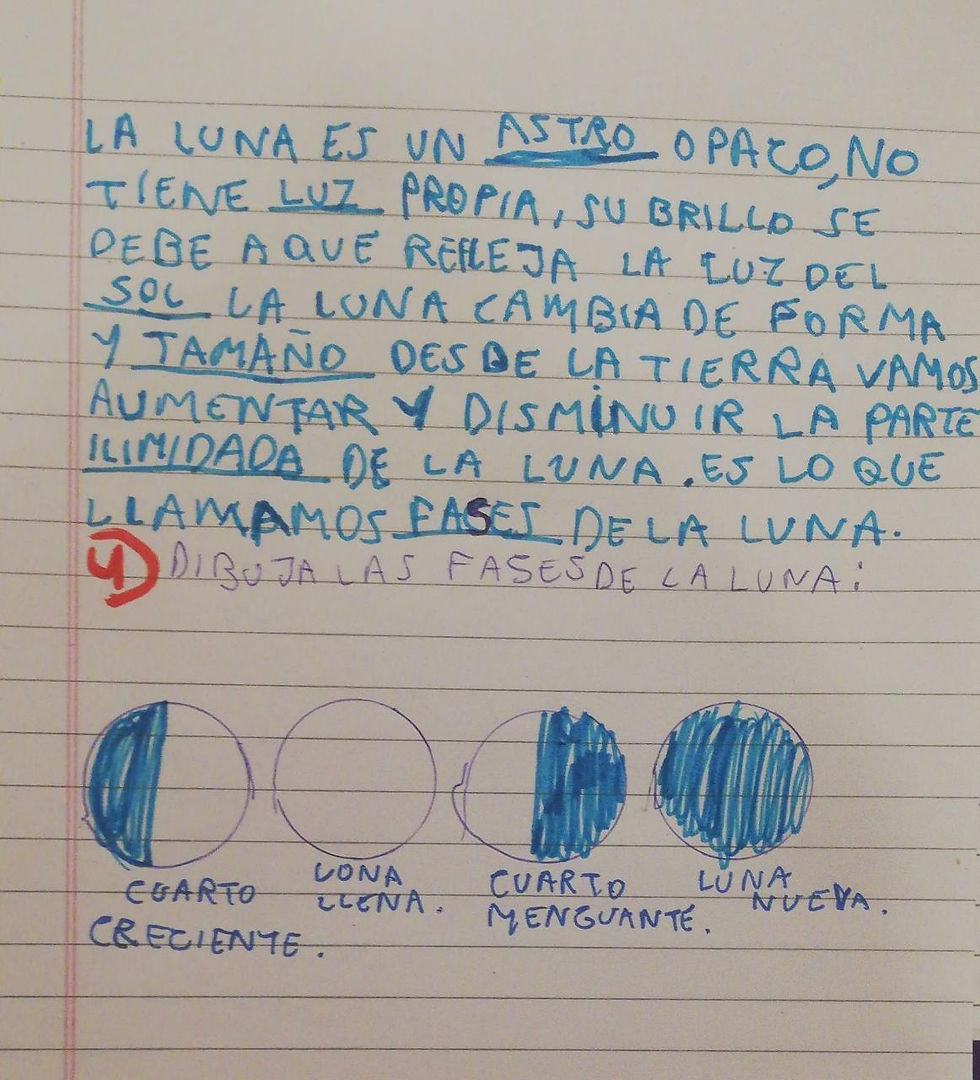 LA LUNA ES UN ASTRO OPACO, NO
TIENE LUZ PROPIA, SU BRILLO SE
DEBE A QUE REFLEJA LA LUZ DEL
SOL LA LUNA CAMBIA DE FORMA
Y TAMAÑO DESDE LA TIERRA VAMOS
AUMENTAR Y DISMINUIR LA PARTE
ILIMIDADA DE LA LUNA. ES LO QUE
LLAMAMOS FASES DE LA LUNA.
4) DIBUJA LAS FASES DE LA LUNA:
CUARTO
CRECIENTE.
LUNA
LLENA.
CUARTO
MENGUANTE.
LUNA
NUEVA.